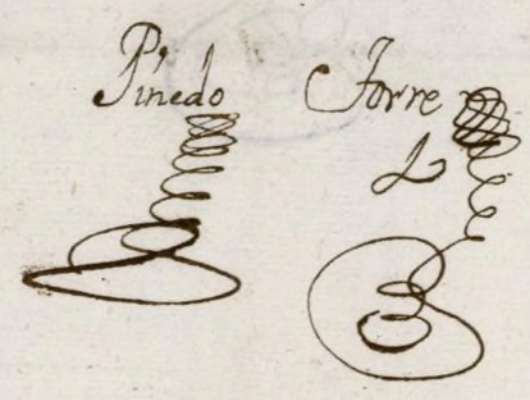 Pinedo Torre
L